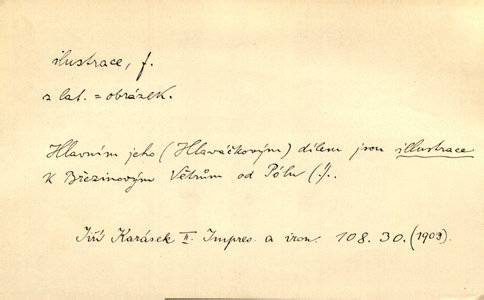 ilustrace, f.
z lat. = obrázek.
Hlavním jeho (Hlaváčkovým) dílem jsou illustrace
k Březinovým Větrům od Pólů (!).
Jiří Karásek II. Impres. a iron. 108. 30. (1903).